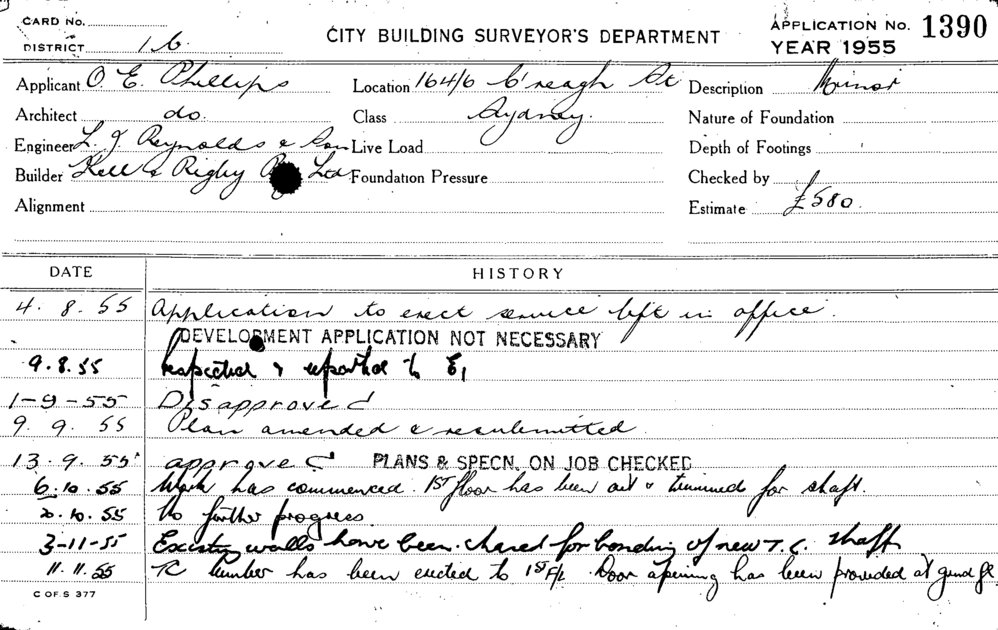 CARD No.
DISTRICT 16
CITY BUILDING SURVEYOR'S DEPARTMENT
APPLICATION No. 1390
YEAR 1955
Applicant O. E. Phillips
Location 164/6 C'reagh St
Description Minor
Architect do.
Class Sydney.
Nature of Foundation
Engineer L. J. Reynolds & Son
Live Load
Depth of Footings
Builder Kell & Rigby Ltd
Foundation Pressure
Checked by
Alignment
Estimate £580.
DATE HISTORY
4. 8. 55 Application to erect service lift in office.
DEVELOPMENT APPLICATION NOT NECESSARY
9.8.55 Inspected & reported to E,
1-9-55 Disapproved
9. 9. 55 Plan amended & resubmitted.
13.9.55 approved PLANS & SPECN. ON JOB CHECKED
6.10.55 Work has commenced. 1ST floor has been cut & trimmed for shaft.
20.10.55 No further progress.
3-11-55 Existing walls have been chased for bonding of new T.C. shaft
11.11.55 TC lumber has been erected to 1ST F/L Door opening has been provided at grnd fl
C OF S 377